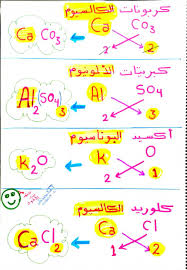 كربونات الكالسيوم
Ca CO3
2 2
CaCO3
كبريتات الألومنيوم
Al SO4
3 2
Al2SO4 3
أكسيد البوتاسيوم
K O
1 2
K2O
كلوريد الكالسيوم
Ca Cl
2 1
CaCl2